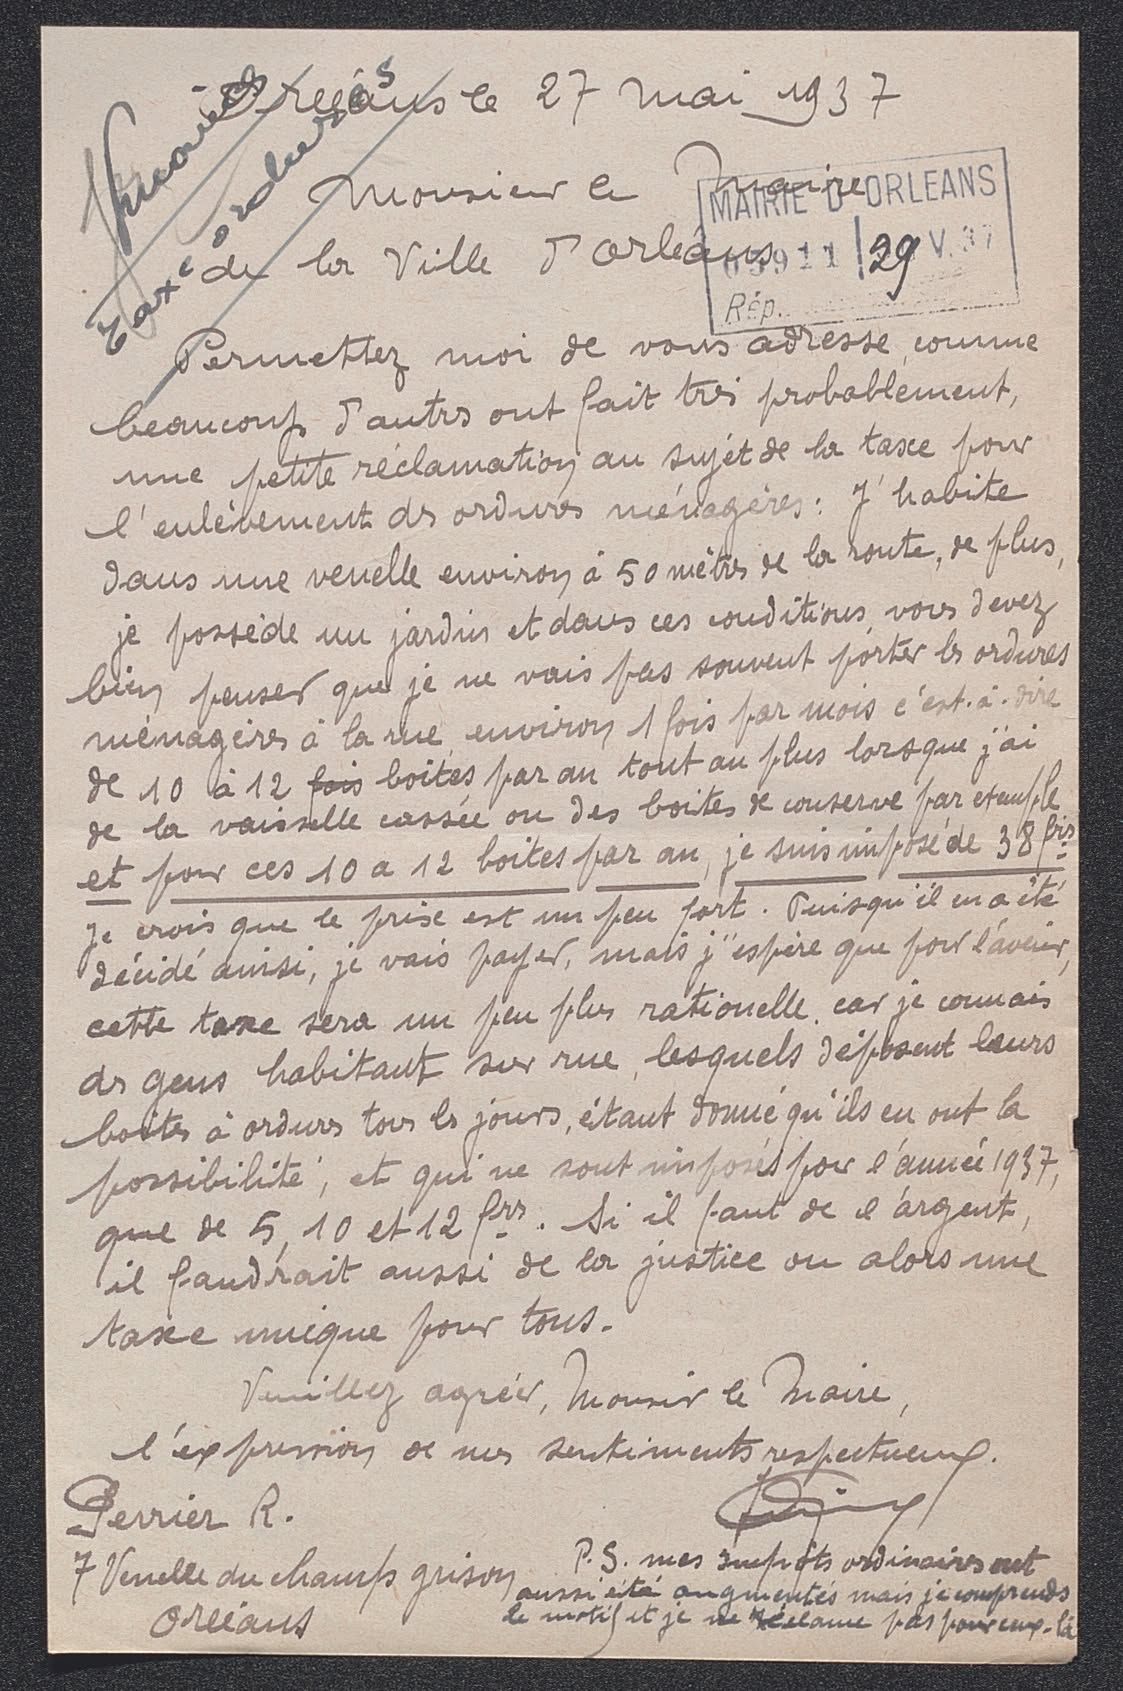 Orléans le 27 mai 1937
Taxe ordures
Monsieur le Maire
MAIRIE D'ORLEANS
de la Ville d'Orléans
29
Rép.
Permettez moi de vous adresse, comme
beaucoup d'autrs ont fait très probablement,
une petite réclamation au sujet de la taxe pour
l'enlèvement ds ordures ménagères : J'habite
dans une venelle environ à 50 mètrs de la route, de plus,
je possède un jardin et dans ces conditions, vous devez
bien penser que je ne vais pas souvent porter ls ordures
ménagères à la rue, environ 1 fois par mois c'est-à-dire
de 10 à 12 fois boites par an tout au plus lorsque j'ai
de la vaisselle cassée ou des boites de conserve par exemple
et pour ces 10 a 12 boites par an, je suis imposé de 38 frs.
Je crois que le prise est un peu fort. Puisqu'il en a été
décidé ainsi, je vais payer, mais j'espère que pour l'avenir,
cette taxe sera un peu plus rationelle, car je connais
ds gens habitant sur rue, lesquels déposent leurs
boites à ordures tous ls jours, étant donné qu'ils en ont la
possibilité, et qui ne sont imposés pour l'année 1937,
que de 5, 10 et 12 frs. Si il faut de l'argent,
il faudrait aussi de la justice ou alors une
taxe unique pour tous.
Veuillez agréer, Monsieur le Maire,
l'expression de mes sentiments respectueux.
Perrier R.
7 Venelle du champ grison
Orléans
P.S. mes impôts ordinaires ont
aussi été augmentés mais je comprends
le motif et je ne réclame pas pour eux-là